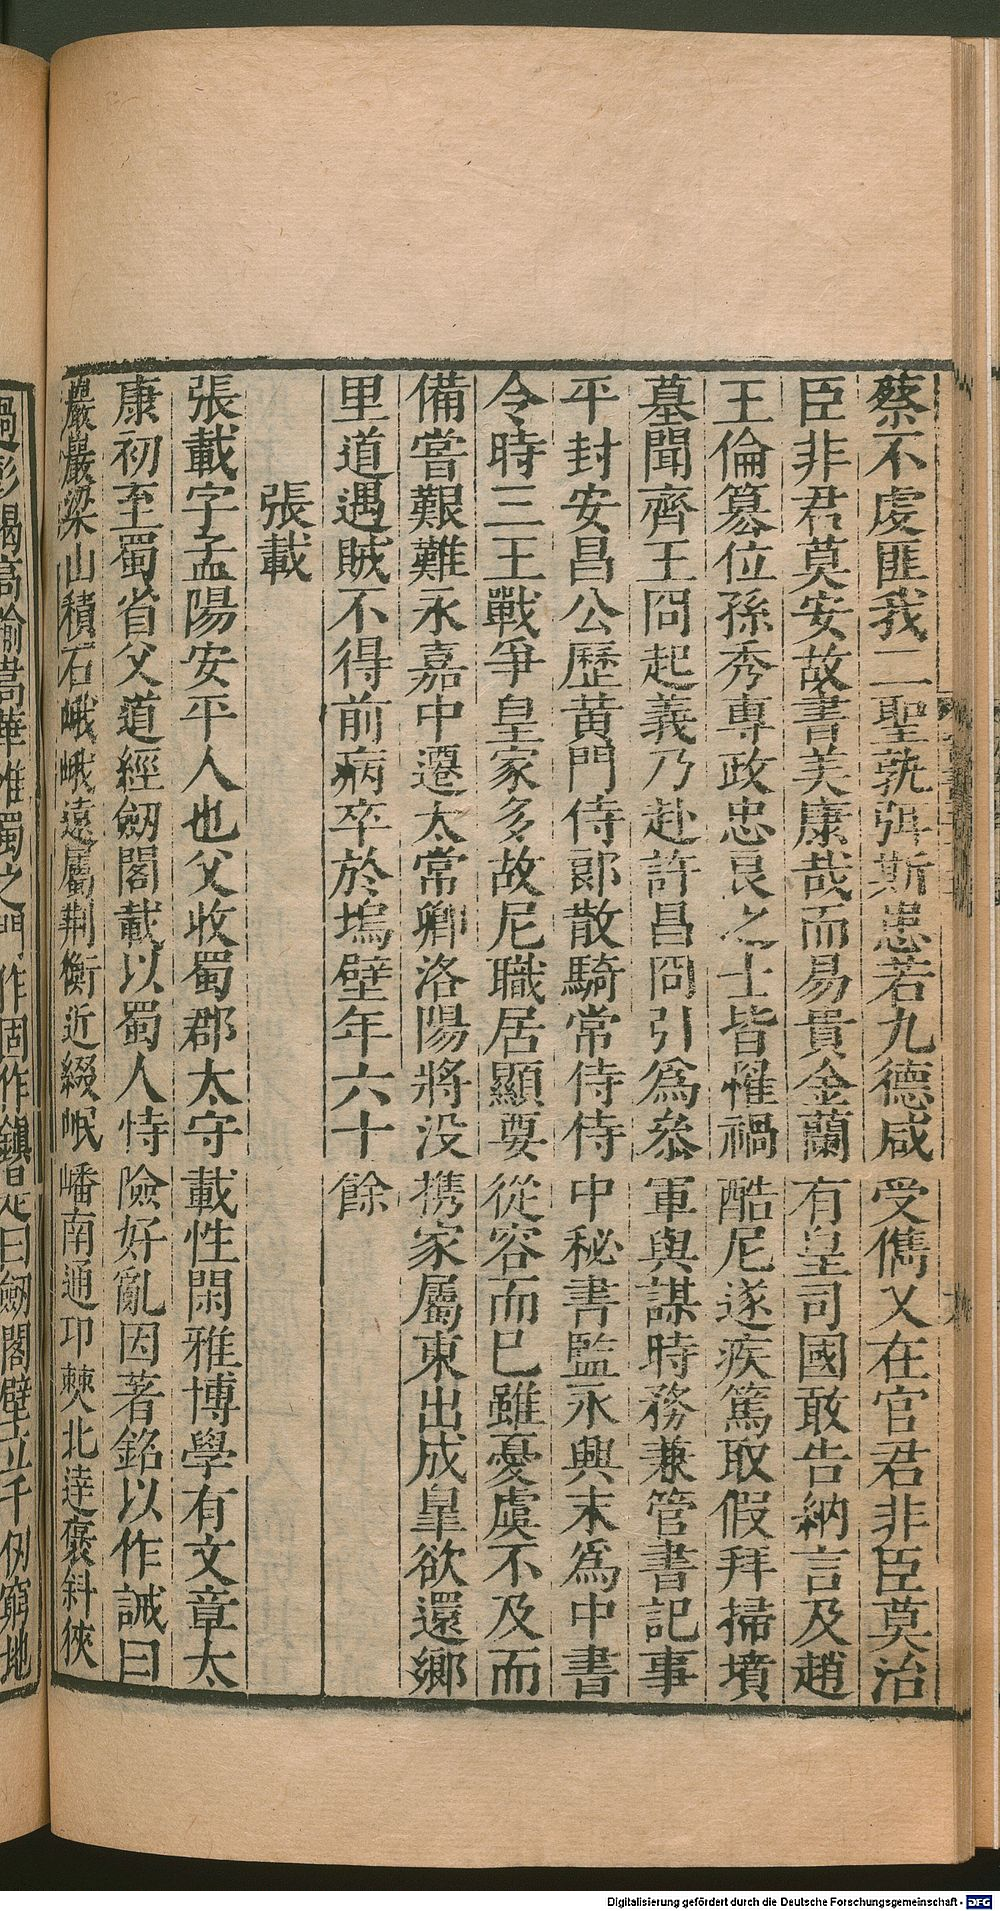 蔡不虔匪我二聖孰弭斯患若九德咸受儁乂在官君非臣莫治
臣非君莫安故書美康哉而易貴金蘭有皇司國敢告納言及趙
王倫篡位孫秀專政忠良之士皆懼禍酷尼遂疾篤取假拜掃墳
墓聞齊王冏起義乃赴許昌冏引爲叅軍與謀時務兼管書記事
平封安昌公歷黄門侍郎散騎常侍侍中秘書監永興末爲中書
令時三王戰爭皇家多故尼職居顯要從容而已雖憂虞不及而
備嘗艱難永嘉中遷太常卿洛陽將没携家屬東出成皐欲還鄉
里道遇賊不得前病卒於塢壁年六十餘
張載
張載字孟陽安平人也父收蜀郡太守載性閑雅博學有文章太
康初至蜀省父道經劒閣載以蜀人恃險好亂因著銘以作誡曰
巖巖梁山積石峨峨遠屬荆衡近綴岷嶓南通卭僰北達褒斜狹
過彭碣高踰嵩華惟蜀之門作固作鎮是曰劒閣壁立千仞窮地
Digitalisierung gefördert durch die Deutsche Forschungsgemeinschaft - DFG